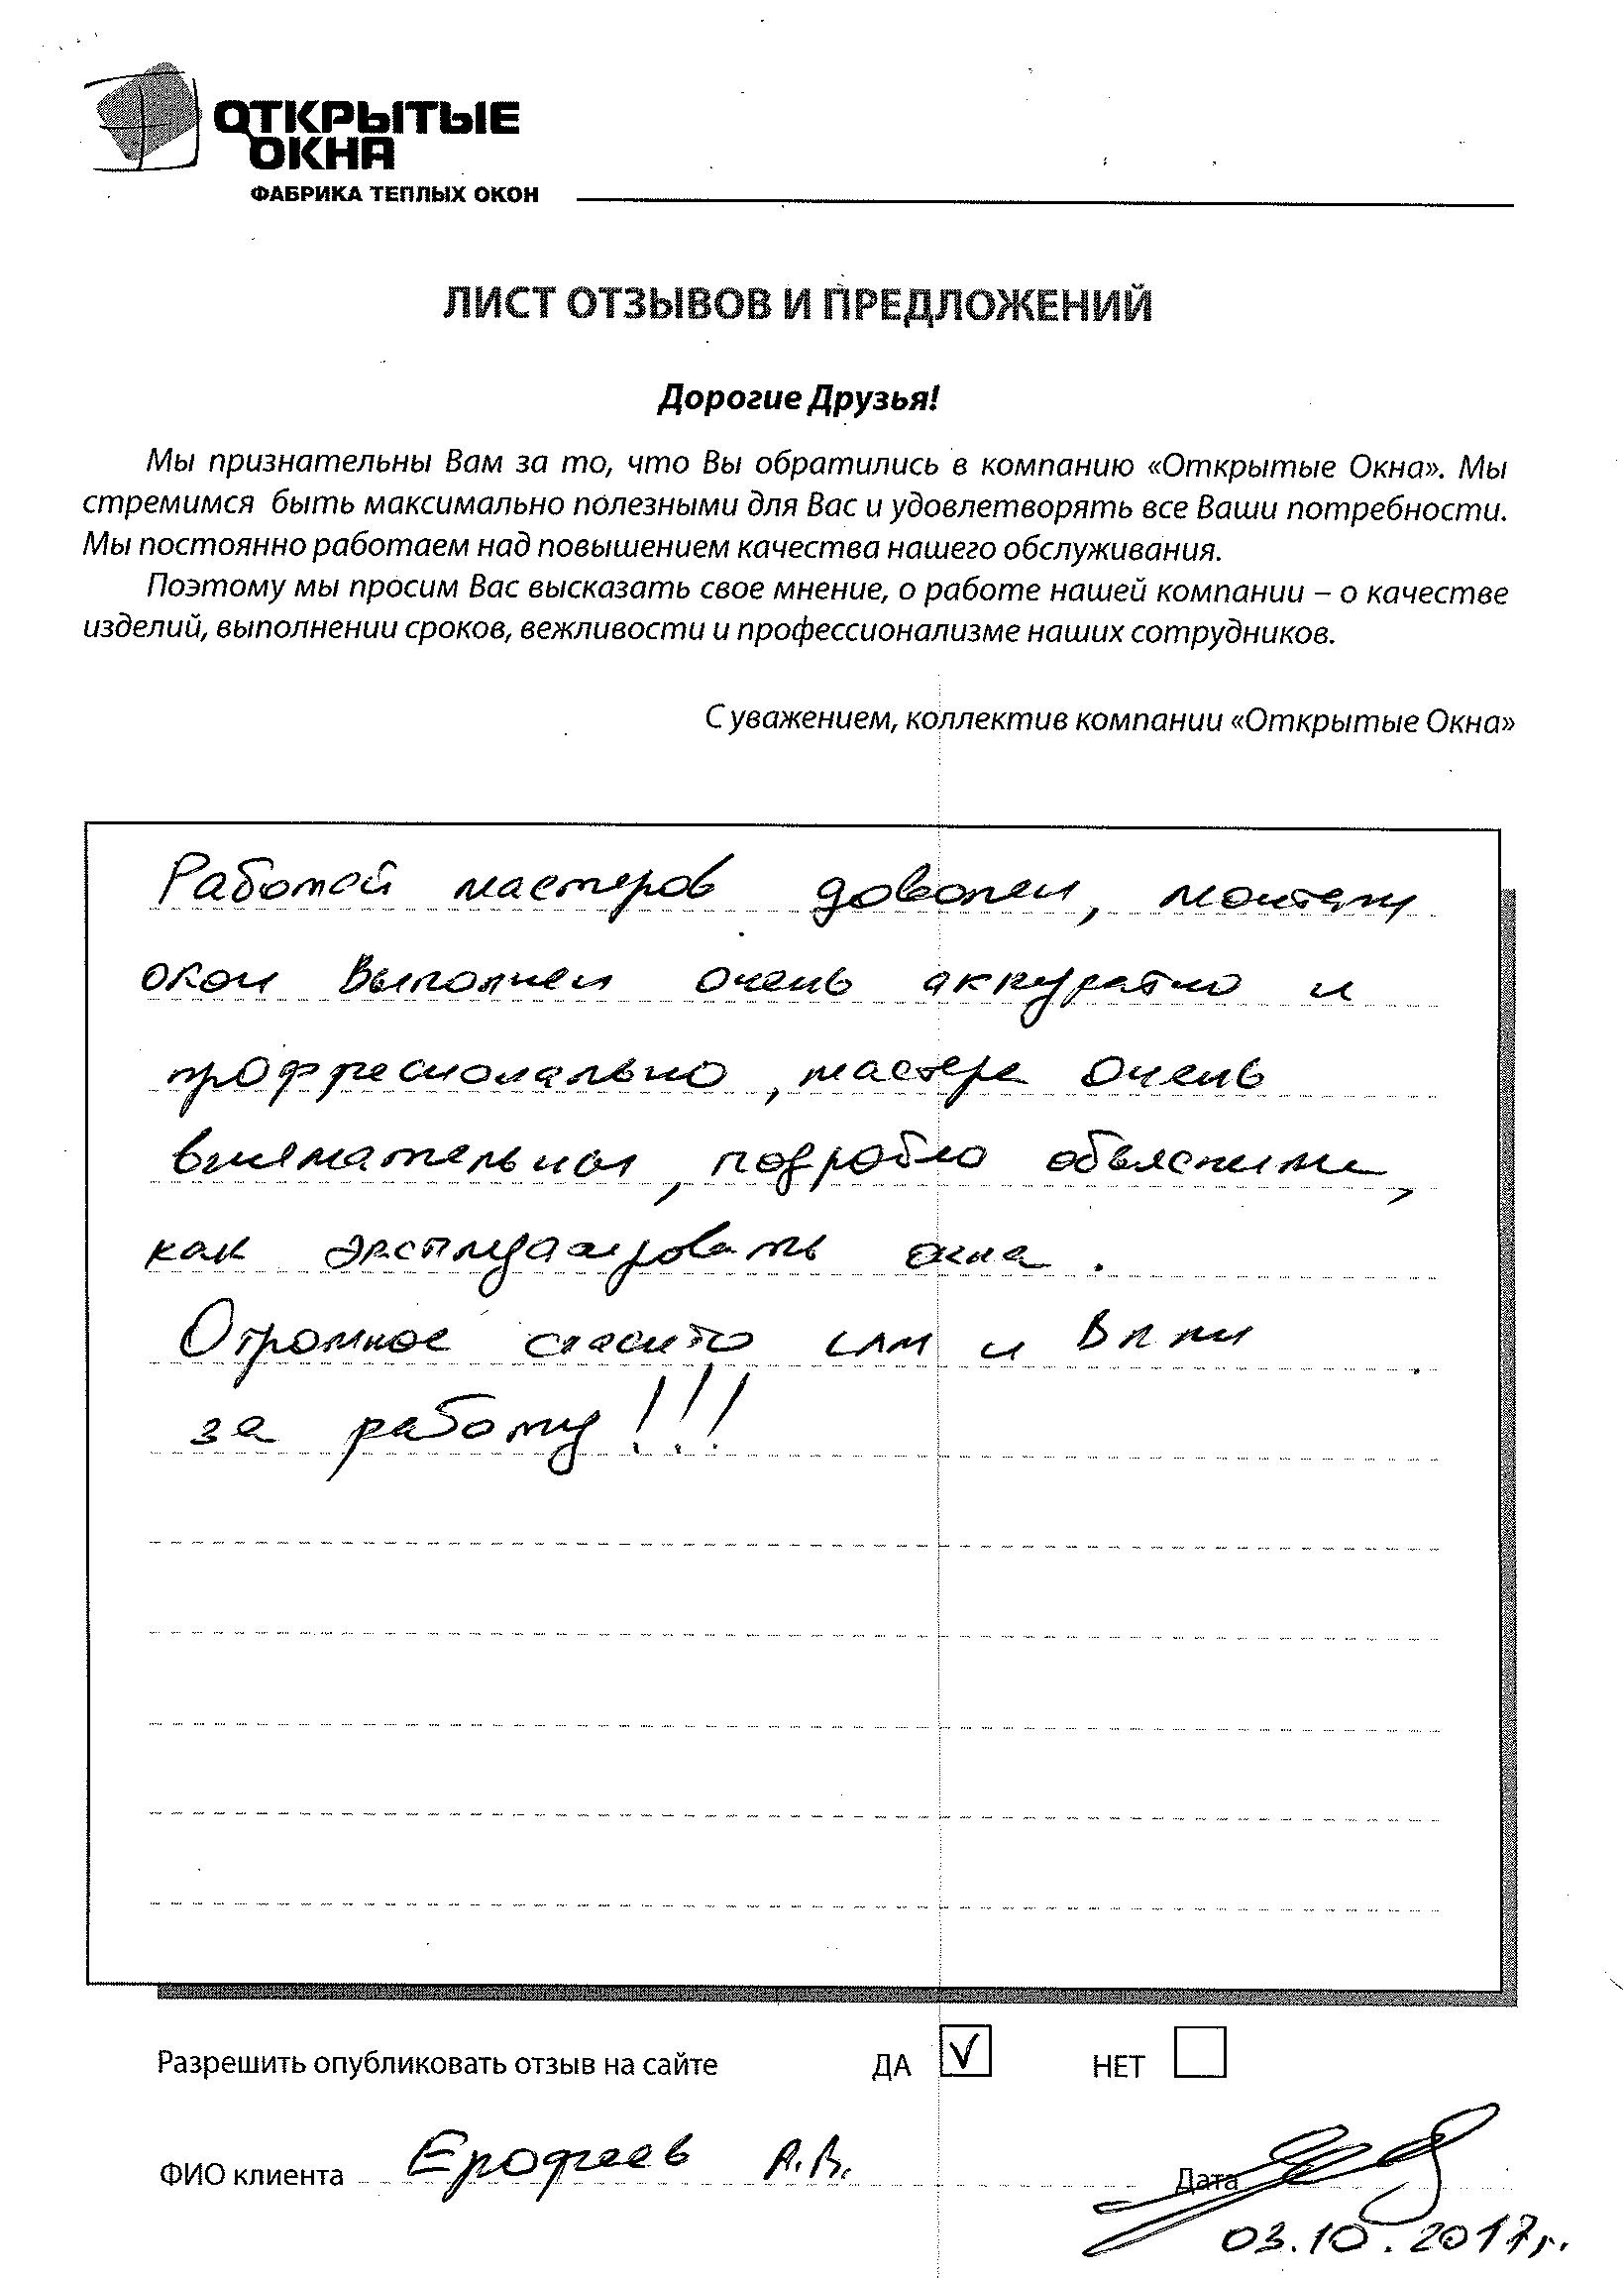 ОТКРЫТЫЕ
ОКНА
ФАБРИКА ТЕПЛЫХ ОКОН
ЛИСТ ОТЗЫВОВ И ПРЕДЛОЖЕНИЙ
Дорогие Друзья!
Мы признательны Вам за то, что Вы обратились в компанию «Открытые Окна». Мы
стремимся быть максимально полезными для Вас и удовлетворять все Ваши потребности.
Мы постоянно работаем над повышением качества нашего обслуживания.
Поэтому мы просим Вас высказать свое мнение, о работе нашей компании – о качестве
изделий, выполнении сроков, вежливости и профессионализме наших сотрудников.
С уважением, коллектив компании «Открытые Окна»
Работой мастеров доволен, монтаж
окон выполнен очень аккуратно и
профессионально, мастера очень
внимательны, подробно объяснили,
как эксплуатировать окна.
Огромное спасибо им и Вам
за работу!!!
Разрешить опубликовать отзыв на сайте ДА НЕТ
ФИО клиента Ерофеев А.В. Дата
03.10.2017г.